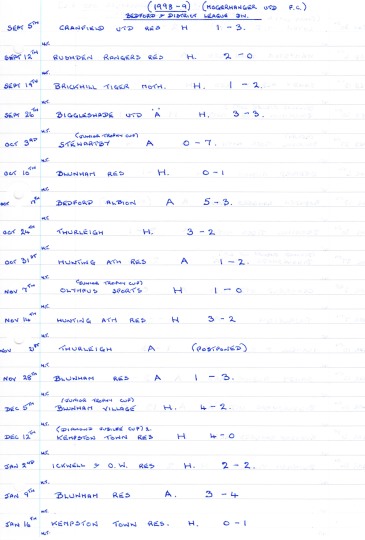 (1998-9) (MOGERHANGER UTD F.C.)
BEDFORD & DISTRICT LEAGUE DIV.
SEPT 5TH CRANFIELD UTD RES H 1-3.
H.T.
SEPT 12TH RUSHDEN RANGERS RES H. 2-0
H.T.
SEPT 19TH BRICKHILL TIGER MOTH. H. 1-2.
H.T.
SEPT 26TH BIGGLESWADE UTD "A" H. 3-3.
H.T. (JUNIOR TROPHY CUP)
OCT 3RD STEWARTBY A 0-7.
H.T.
OCT 10TH BLUNHAM RES H. 0-1
H.T.
OCT 17TH BEDFORD ALBION A 5-3.
H.T.
OCT 24TH THURLEIGH H. 3-2
H.T.
OCT 31ST HUNTING ATH RES A 1-2.
H.T. (JUNIOR TROPHY CUP)
NOV 7TH OLYMPUS SPORTS H 1-0
H.T.
NOV 14TH HUNTING ATH RES H 3-2
H.T.
NOV 21ST THURLEIGH A (POSTPONED)
H.T.
NOV 28TH BLUNHAM RES A 1-3.
H.T. (JUNIOR TROPHY CUP)
DEC 5TH BLUNHAM VILLAGE H. 4-2.
H.T. (DIAMOND JUBILEE CUP) 2.
DEC 12TH KEMPSTON TOWN RES H 4-0
H.T.
JAN 2ND ICKWELL & O.W. RES H. 2-2.
H.T.
JAN 9TH BLUNHAM RES A. 3-4
H.T.
JAN 16TH KEMPSTON TOWN RES. H. 0-1
H.T.